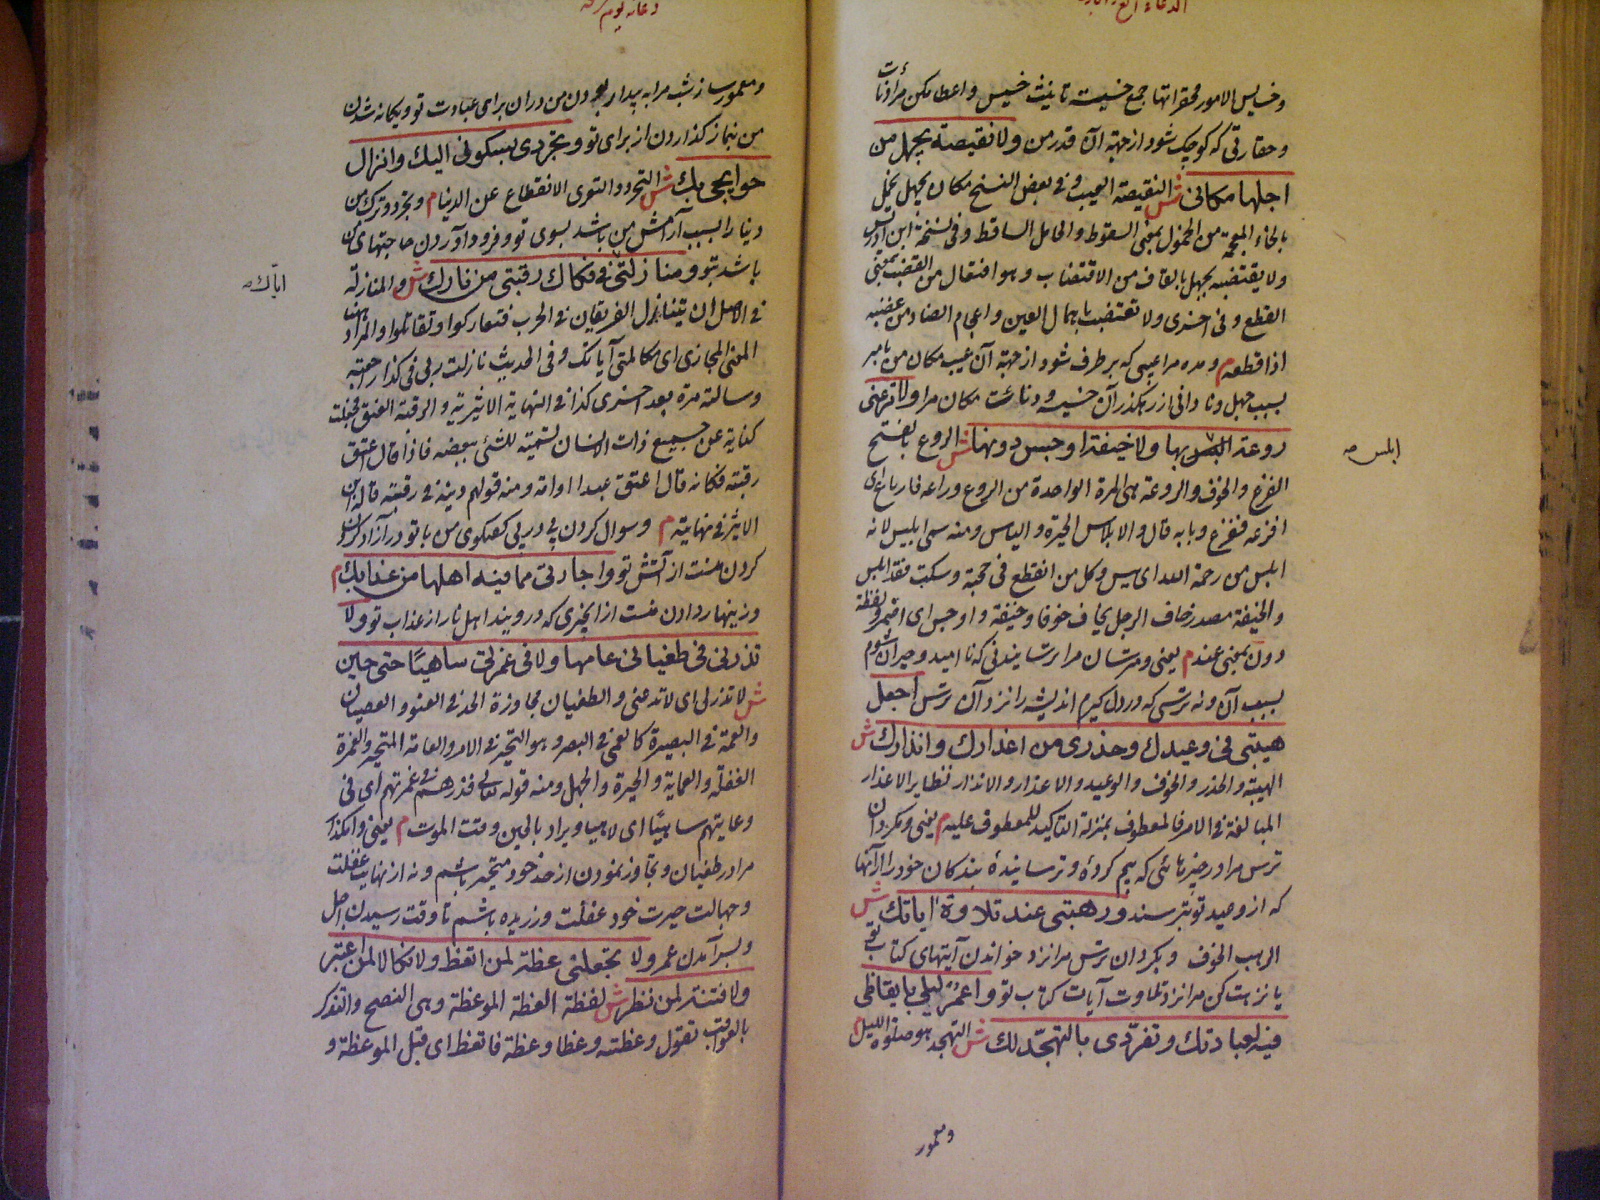 وخسايس الامور محقراتها جمع خسيسة تانيث خسيس واعطا مكن مرا دنائت
وحقارتى كه كوچك شود از جهة آن قدر من ولا نقيصة يجهل من
اجلها مكانى ش النقيصة العيب وفى بعض النسخ مكان يجهل يخمل
بالخاء المعجمة من الخمول بمعنى السقوط والخامل الساقط وفى نسخة ابن ادريس
ولا يقتضبه يجهل بالقاف من الاقتضاب وهو افتعال من القضب بمعنى
القطع وفى اخرى ولا تعتضب باهمال العين واعجام الضاد من عضبه
اذا قطعه م ومده مرا عيبى كه برطرف شود از جهة آن عيب مكان من يا مبر
بسبب جهل ونادانى از رهكذر آن خسيسه ودنائت مكان مرا ولا ترعنى
روعة ابلس بها ولا خيفة اوجس دونها ش الروع بالفتح
الفزع والخوف والروعة هى المرة الواحدة من الروع وراعه فارتاع اى
افزعه ففزع وبابه قال والابلاس الحيرة والياس ومنه سمى ابليس لانه
ابلس من رحمة الله اى يئس وكل من انقطع فى حجة وسكت فقد ابلس
والخيفة مصدر خاف الرجل يخاف خوفا وخيفة واوجس اى اضمر ولفظة
دون بمعنى عند م يعنى ومترسان مرا ترسانيدنى كه نا اميد وحيران شوم
بسبب آن ونه ترسى كه در دل كيرم انديشه را نزد آن ترس اجعل
هيبتى فى وعيدك وحذرى من اعذارك وانذارك ش
الهيبة والحذر والخوف والوعيد والاعذار والانذار نظاير الاعذار
المبالغة فى الامر فالمعطوف بمنزلة التاكيد للمعطوف عليه م يعنى وبكردان
ترس مرا در چيزهائى كه بيم كردۀ وترسانيدۀ بندكان خود را از آنها
كه از وعيد تو بترسند ورهبتى عند تلاوة اياتك ش
الرهب الخوف وبكردان ترس مرا نزد خواندن آيتهاى كتاب تو
يا نزهت كن مرا نزد تلاوت آيات كتاب تو واعمر ليلى بايقاظى
فيه لعبادتك وتفردى بالتهجد لك ش التهجد هو صلوة الليل م
ابلس صه
ومعمور
دعائه يوم عرفه
ومعمور ساز شب مرا به بيدار بودن من در ان براى عبادت تو ويكانه شدن
من بنماز كذاردن از براى تو وتجردى بسكونى اليك وانزال
حوايجى بك ش التجرد والتعرى الانقطاع عن الدنيا م وتجرد وترك من
دنيا را بسبب آرامش من باشد بسوى تو وفرود اوردن حاجتهاى من
باشد بتو ومنازلتى فى فكاك رقبتى من نارك ش والمنازلة
فى الاصل ان يتنازل الفريقان فى الحرب فتعاركوا وتقاتلوا والمراد هنا
المعنى المجازى اى مكالمتى اياك وفى الحديث نازلت ربى فى كذا راجعته
وسالته مرة بعد اخرى كذا فى النهاية الاثيرية والرقبة العنق فجعلت
كناية عن جميع ذات الانسان تسمية للشئ ببعضه فاذا قال اعتق
رقبة فكانه قال اعتق عبدا او امة ومنه قولهم دينه فى رقبته قاله ابن
الاثير فى نهايته م وسوال كردن پى در پى كفتكوى من با تو در آزاد كردن
كردن منست از آتش تو واجارتى مما فيه اهلها من عذابك م
وزينهار دادن منست از ان چيزى كه درويند اهل نار از عذاب تو ولا
تذرنى فى طغيانى عامها ولا فى غمرتى ساهيًا حتى حين
ش لا تذرنى اى لا تدعنى والطغيان مجاوزة الحد فى العتو والعصيان
والعمه فى البصيرة كالعمى فى البصر وهو التحير فى الامر والعامه المتحير والغمرة
الغفلة والعماية والحيرة والجهل ومنه قوله تعالى فذرهم فى غمرتهم اى فى
وعمايتهم ساهيًا اى لاهيا ويراد بالحين وقت الموت م يعنى وامكذار
مرا در طغيان وتجاوز نمودن از حد خود متحير باشم ونه از نهايت غفلت
وجهالت حيرت خود غفلت ورزيده باشم تا وقت رسيدن اجل
وبسر آمدن عمر ولا تجعلنى عظة لمن اتعظ ولا نكالا لمن اعتبر
ولا فتنة لمن نظر ش لفظة العظة الموعظة وهى النصح والتذكر
بالعواقب تقول وعظته وعظا وعظة فاتعظ اى قبل الموعظة و
اياك صه